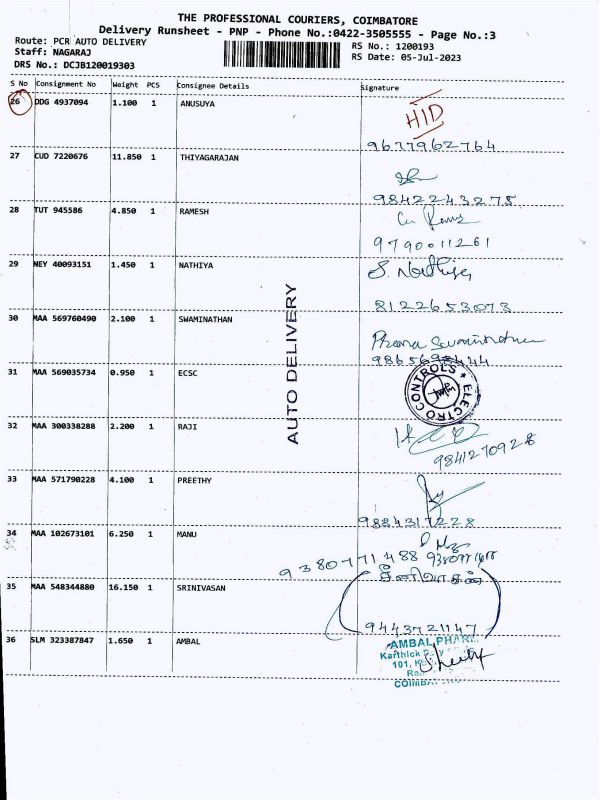 THE PROFESSIONAL COURIERS, COIMBATORE
Delivery Runsheet - PNP - Phone No.:0422-3505555 - Page No.:3
Route: PCR AUTO DELIVERY
RS No.: 1200193
Staff: NAGARAJ
RS Date: 05-Jul-2023
DRS No.: DCJB120019303
S No Consignment No Weight PCS Consignee Details Signature
26 DDG 4937094 1.100 1 ANUSUYA
HID
9677962764
27 CUD 7220676 11.850 1 THIYAGARAJAN
9842243275
28 TUT 945586 4.850 1 RAMESH
9790011261
29 NEY 40093151 1.450 1 NATHIYA
S. Nathiya
8122653073
30 MAA 569760490 2.100 1 SWAMINATHAN
Swaminathan
31 MAA 569035734 0.950 1 ECSC
ELECTRO CONTROLS
32 MAA 300338288 2.200 1 RAJI
9841270928
33 MAA 571790228 4.100 1 PREETHY
9884317228
34 MAA 102673101 6.250 1 MANU
9380771488
35 MAA 548344880 16.150 1 SRINIVASAN
சீனிவாசன்
9443721147
36 SLM 323387847 1.650 1 AMBAL
AMBAL PHAR
Karthick
101,
COIMBA
AUTO DELIVERY